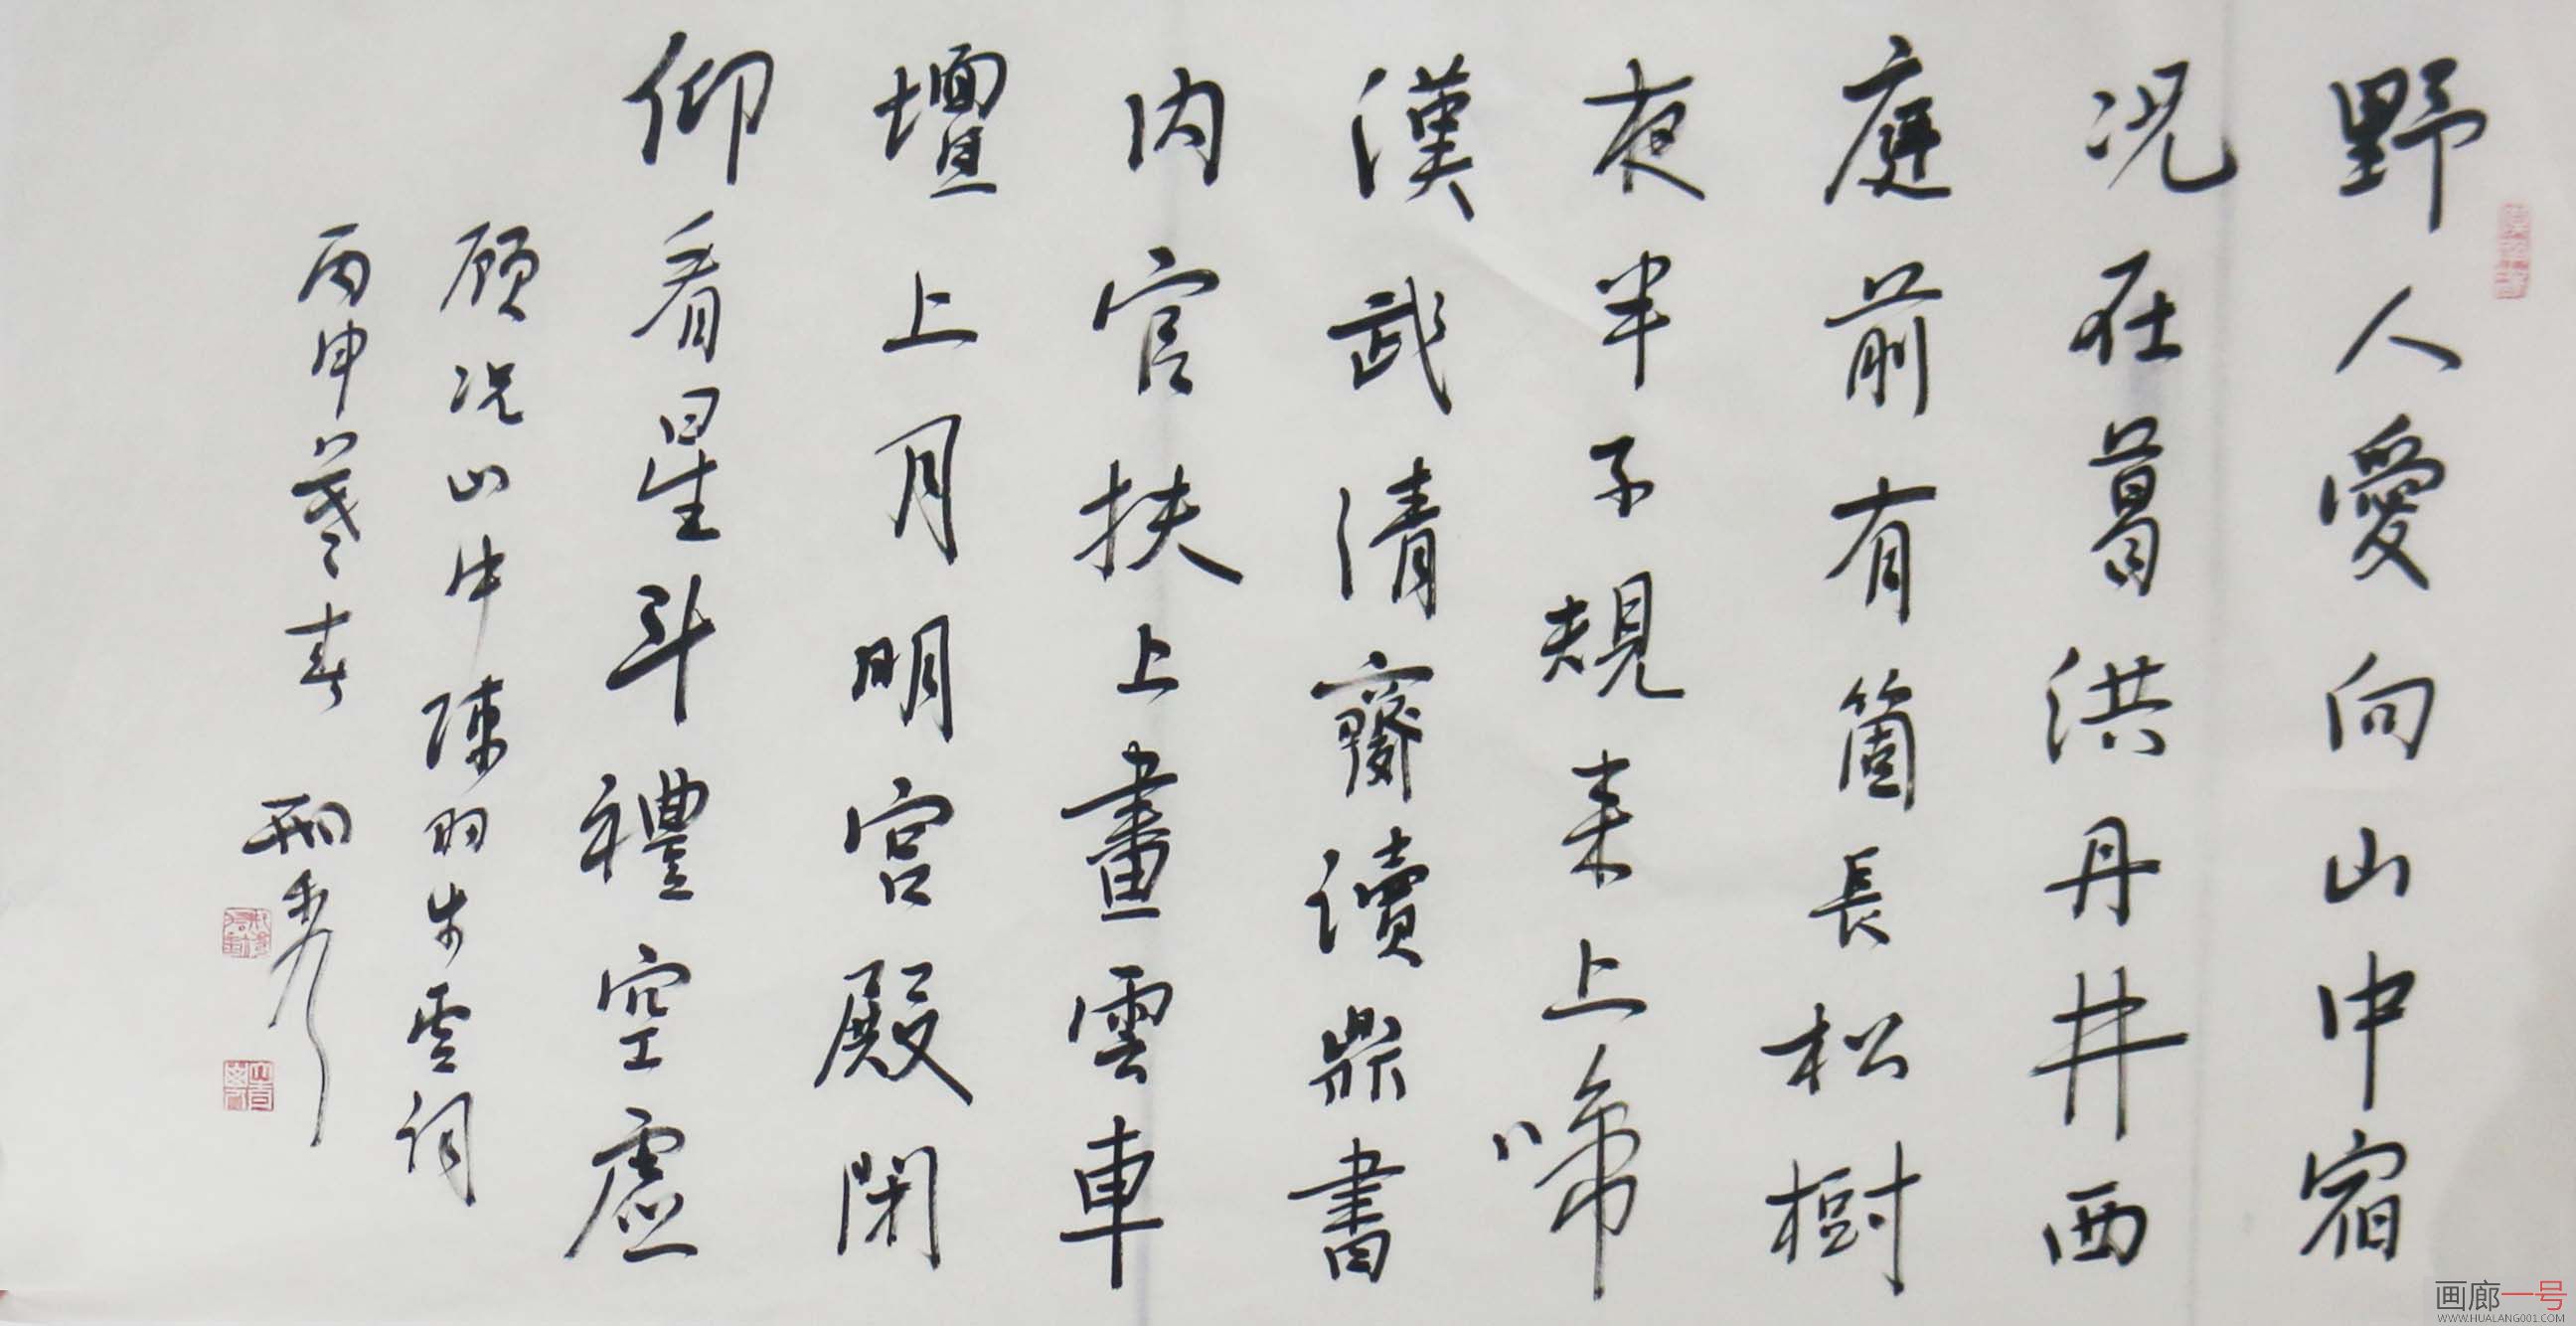 野人愛向山中宿
况在葛洪丹井西
庭前有箇長松樹
夜半子規来上啼
漢武清齋讀鼎書
内官扶上畫雲車
壇上月明宮殿閉
仰看星斗禮空虛
顾况山中陳羽步雲词
丙申暮春
画廊一号
WWW.HUALANG001.COM